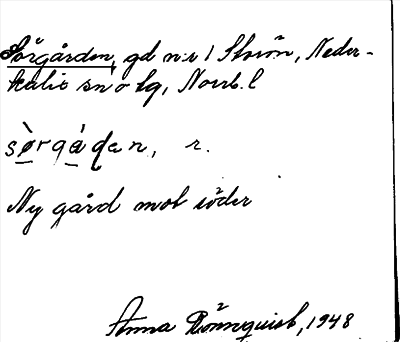 Sörgården, gd nr 1 Storön, Neder-
kalix sn o tg, Norrb. l
sø̀rgà̱ɖan, r.
Ny gård mot söder
Anna Rönnquist, 1948